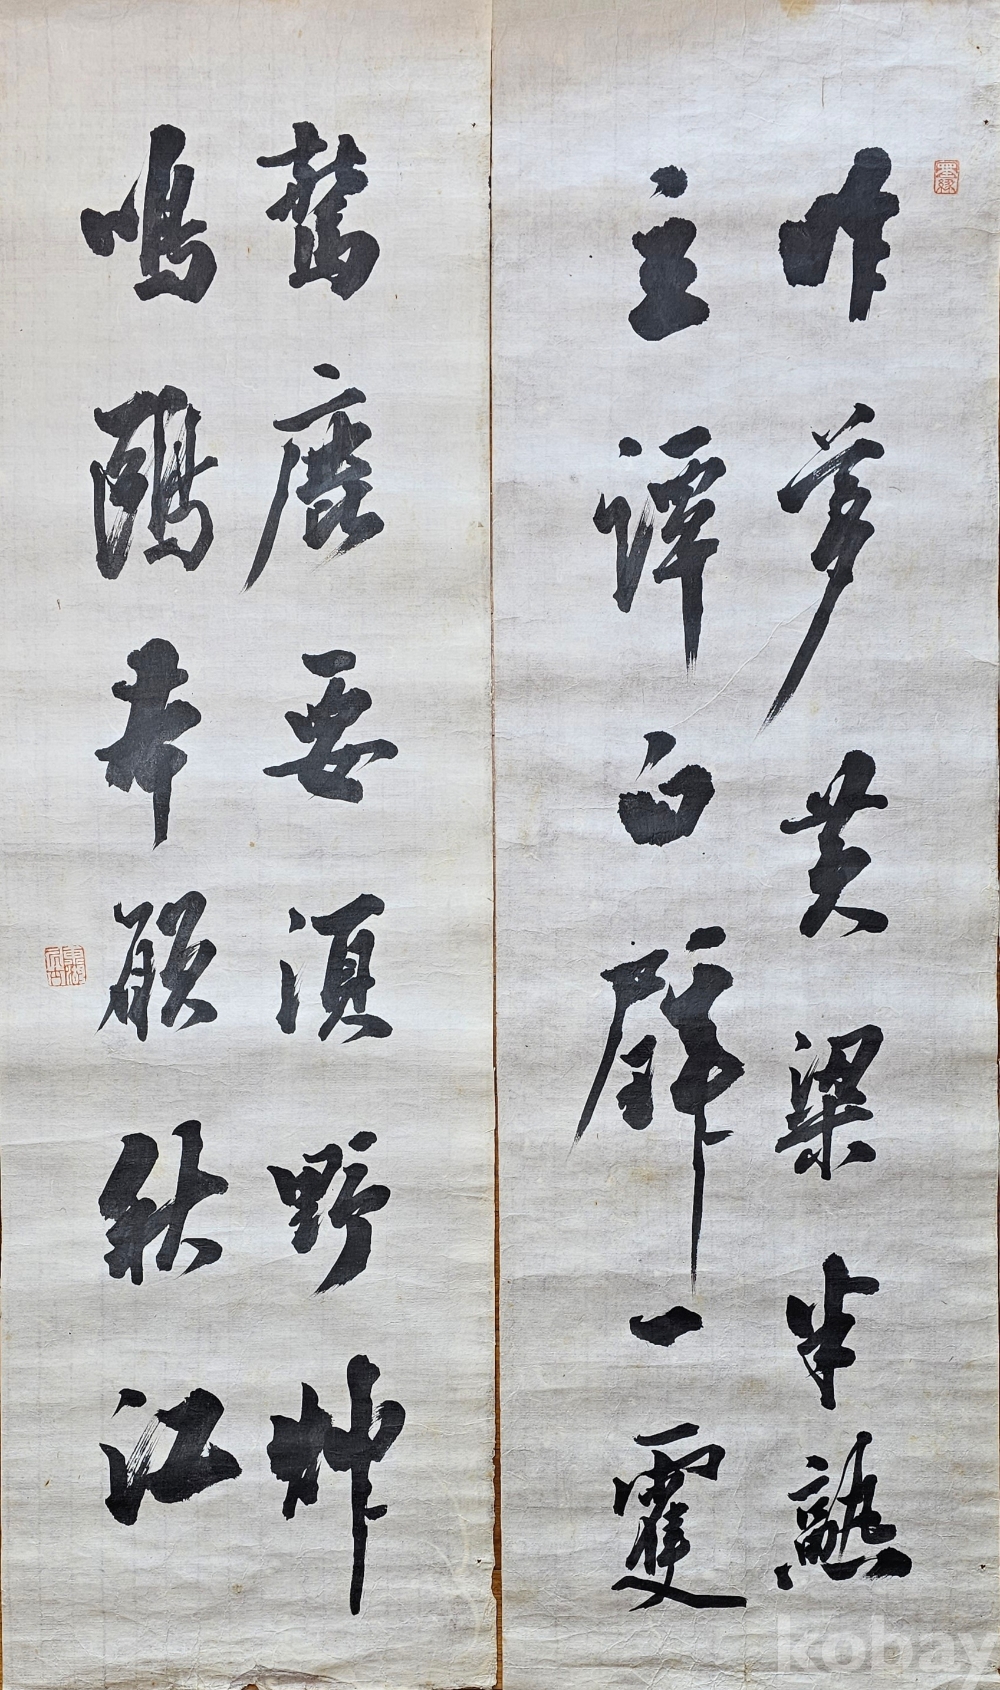 昨夢黃粱半熟
立譚白璧一雙
驚鹿要須野艸
鳴鷗本願秋江
kobay